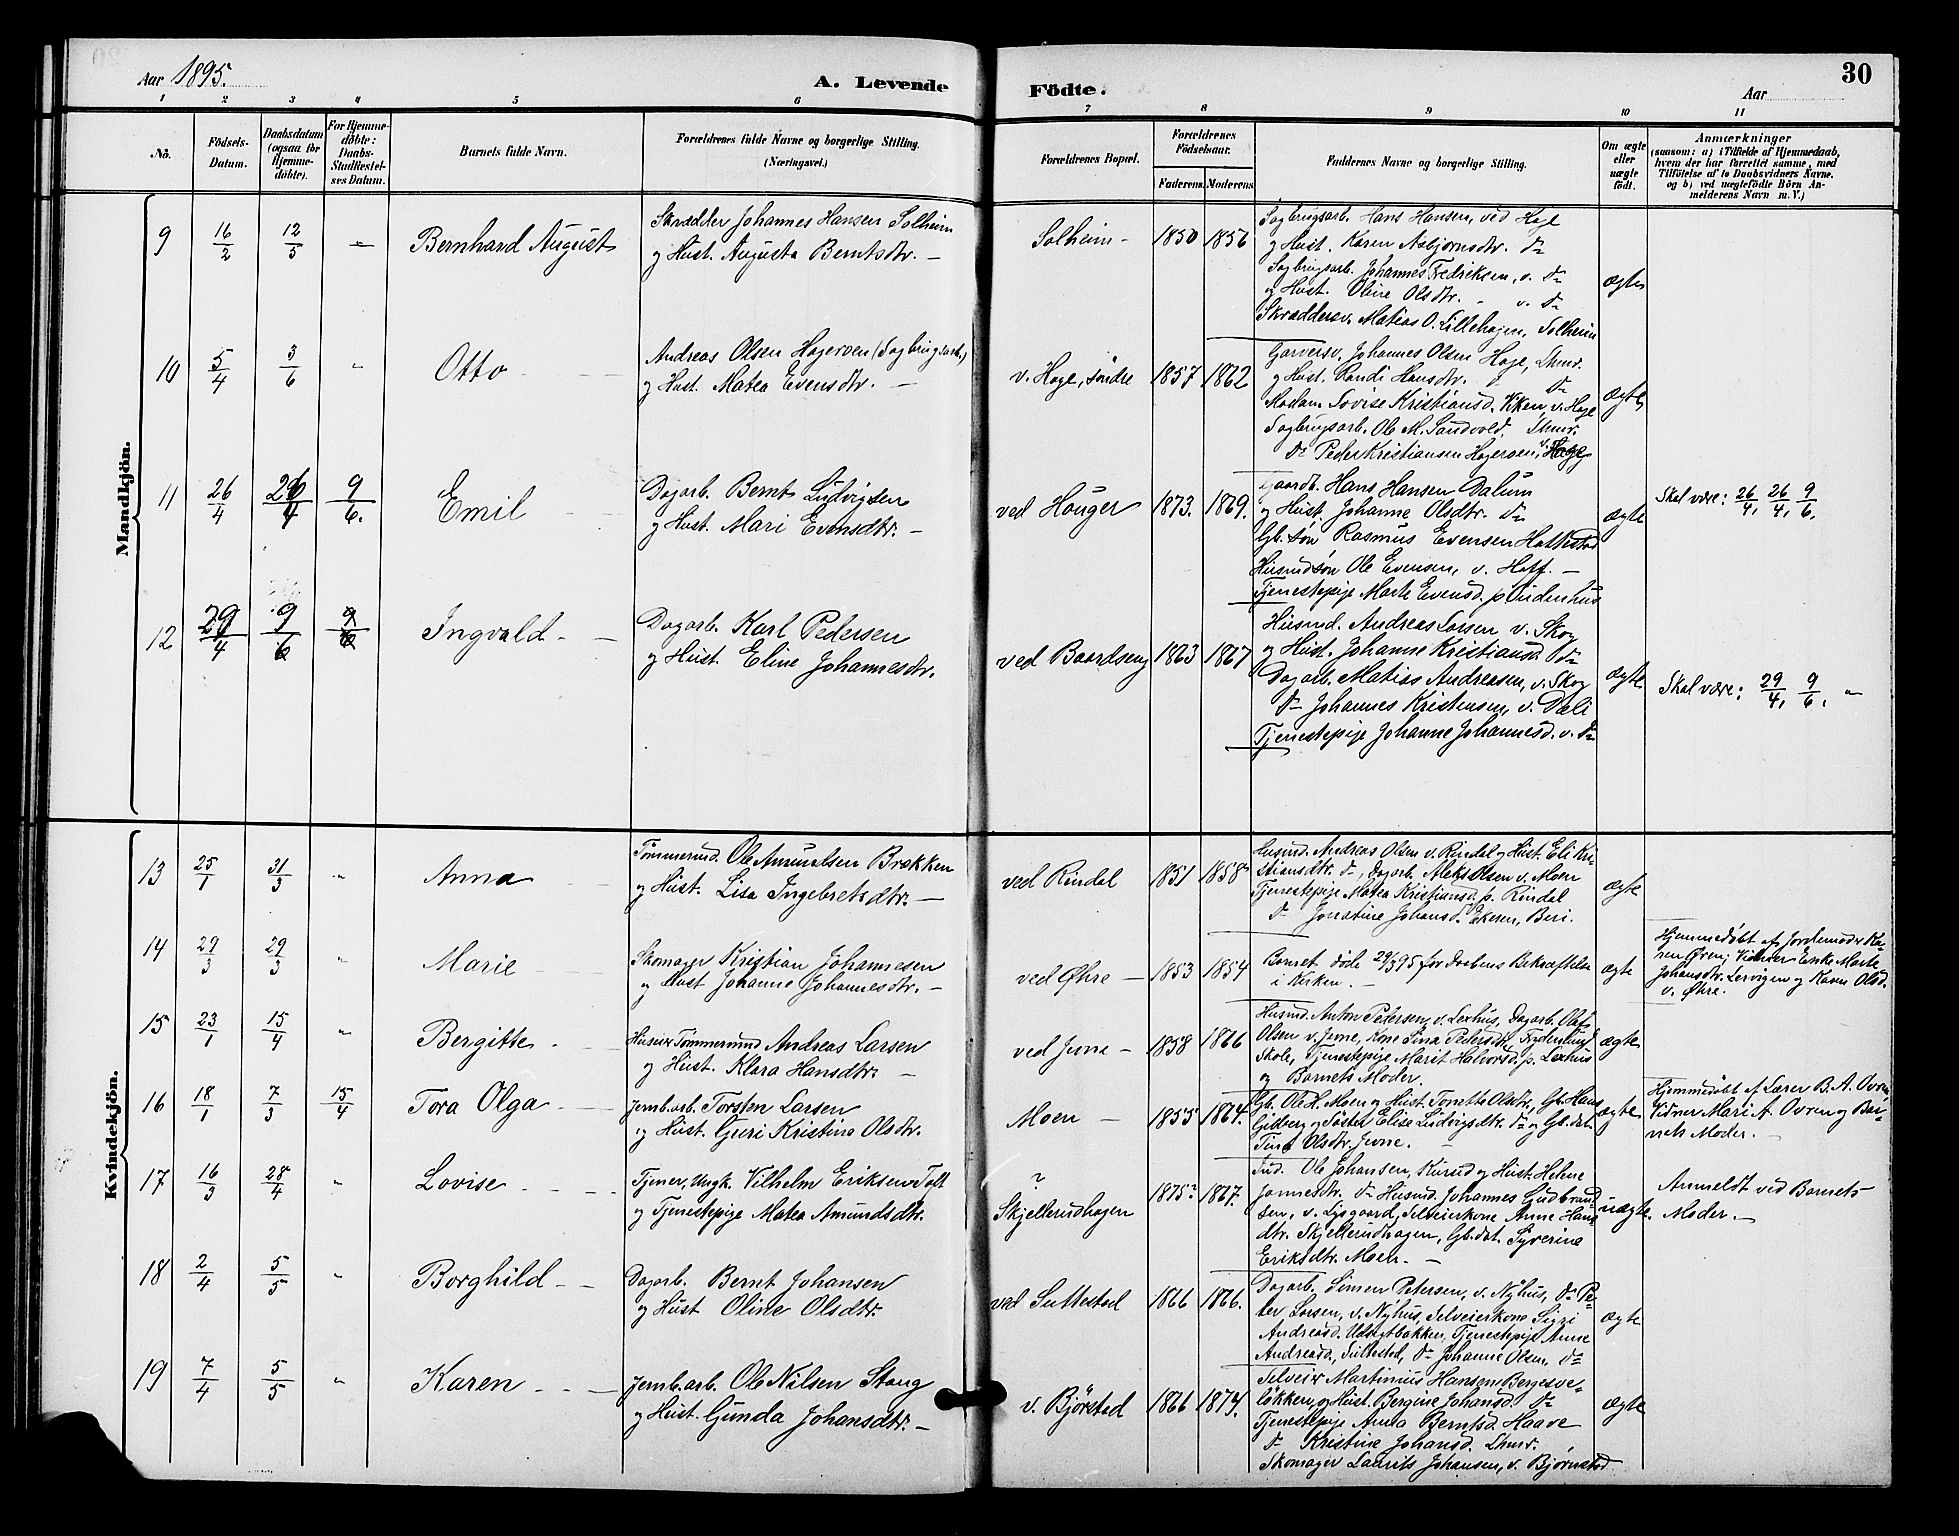 Aar 1895.
A. Levende Födte.
Aar
30
1 2 3 4 5 6 7 8 9 10 11
No.
Födsels-Datum.
Daabsdatum (ogsaa for Hjemme-döbte).
For Hjemme-döbte: Daabs-Stadfæstel-ses Datum.
Barnets fulde Navn.
Forældrenes fulde Navne og borgerlige Stilling. (Næringsvei.)
Forældrenes Bopæl.
Forældrenes Födselsaar.
Faderens Moderens
Faddernes Navne og borgerlige Stilling.
Om ægte eller uægte födt.
Anmærkninger
(saasom: a) i Tilfælde af Hjemmedaab,
hvem der har forrettet samme, med
Tilföielse af to Daabsvidners Navne.
og b) ved uægtefödte Börn An-
melderens Navn m. V.)
Mandkjön.
9 16/2 12/5 — Bernhard August
Skrædder Johannes Hansen Solheim
og Hust. Augusta Berntsdtr. —
Solheim — 1850 1856
Sagbrugsarb. Hans Hansen, ved Hage
og Hust. Karen Asbjørnsdtr. do
Sagbrugsarb. Johannes Fredriksen, v. do
og Hust. Oline Olsdtr. - v. do
Skræddersv. Matias O. Lillehagen, Solheim
ægte
10 5/4 3/6 " Otto
Andreas Olsen Hageroen (Sagbrugsarb.)
og Hust. Matea Evensdtr. —
v. Hage, søndre 1857 1862
Garversv. Johannes Olsen Hage, Lhmr.
og Hust. Randi Hansdtr. " do
Madam Lovise Kristiansd. Viken, v. Hage
Sagbrugsarb. Ole M. Sandvold, Lhmr.
do Peder Kristiansen Hageroen, v. Hage
ægte
11 26/4 26/4 9/6. Emil
Dagarb. Bernt Ludvigsen
og Hust. Mari Evensdtr. —
ved Houger 1873. 1869.
Gaardb. Hans Hansen Dalum
og Hust. Johanne Olsdtr. do
Gb. søn Rasmus Evensen Hattestad
Husmdsøn Ole Evensen, v. Hoff. —
Tjenestepige Marte Evensd. p. Sudenhus
ægte
Skal være: 26/4, 26/4, 9/6.
12 29/4 9/6 9/6 Ingvald — —
Dagarb. Karl Pedersen
og Hust. Eline Johannesdtr.
ved Baardseng 1863 1867
Husmd. Andreas Larsen v. Skog
og Hust. Johanne Kristiansd. do
Dagarb. Matias Andreasen, v. Skog
do Johannes Kristiansen, v. Dæli
Tjenestepige Johanne Johannesd. v. do
ægte
Skal være: 29/4, 9/6. "
Kvindekjön.
13 25/1 31/3 " Anna
Tømmermd. Ole Amundsen Brækken
og Hust. Lisa Ingebretsdtr. —
ved Rindal 1851 1858
Husmd. Andreas Olsen v. Rindal og Hust. Eli Kri-
stiansdtr. do, Dagarb. Aleks Olsen v. Moen
Tjenestepige Matea Kristiansd. p. Rindal
do Jonatine Johansd. Ekeren, Biri.
ægte
14 29/3 29/3 " Marie
Skomager Kristian Johannesen
og Hust Johanne Johannesdtr. —
ved Øhre — 1853 1854
Barnet døde 29/3 95 før Daabens Bekræftelse
i Kirken. —
ægte
Hjemmedøbt af Jordemoder Ka-
ren Øren; Vidner Enke Marte
Johansdtr. Lervigen og Karen Olsd.
v. Øhre.
15 23/1 15/4 " Bergitte.
Huseier Tømmermd Andreas Larsen
og Hust. Klara Hansdtr. —
ved Jevne — 1858 1866
Husmd. Anton Pedersen, v. Lexhus, Dagarb. Olaf
Olsen v. Jevne, Kone Sina Pedersdtr. Frydenlund
Skole, Tjenestepige Marit Halvorsd. p. Lexhus
og Barnets Moder.
ægte
16 18/1 7/3 15/4 Tora Olga
Jernb.arb. Torsten Larsen
og Hust. Guri Kristine Olsdtr.
Moen — 1855 1864.
Gb. Ole H. Moen og Hust. Tonette Olsdtr, Gb. Hans
Gidberg og Søster Elise Ludvigsdtr. do og Gb. dat.
Tina Olsdtr. Jevne.
ægte
Hjemmedøbt af Lærer B. A. Ovren,
Vidner Mari A. Ovren og Bar-
nets Moder. —
17 16/3 28/4 " Lovise
Tjener, Ungk. Vilhelm Eriksen Toft
og Tjenestepige Matea Amundsdtr.
?
Skjellerudhagen 1875? 1867.
Ind. Ole Johansen, Kurud og Hust. Helene
Jonnesdtr. do Husmd. Johannes Gudbrand-
sen, v. Lysgaard, Selveierkone Anne Hans
dtr. Skjellerudhagen, Gb. dat. Syverine
Eriksdtr. Moen. —
uægte.
Anmeldt ved Barnets
Moder. —
18 2/4 5/5 " Borghild — —
Dagarb. Bernt Johansen
og Hust Oline Olsdtr.
ved Suttestad 1866 1866.
Dagarb. Simen Petersen, v. Nyhus, do Pe-
ter Larsen, v. Nyhus, Selveierkone Sigri
Andreasd. Udsigtbakken, Tjenestepige Anne
Andreasd, Suttestad, do Johanne Olsen, do
ægte
19 7/4 5/5 " Karen
Jernb. arb. Ole Nilsen Stang
og Hust. Gunda Johansdtr. —
v. Bjørstad 1866 1874.
Selveier Martinius Hansen Bergesve-
løkken, og Hust. Bergine Johansd. do
Tjenestepige Anna Berntsd. Haave
do Kristine Johansd. Lhmr.
Skomager Laurits Johansen, v. Bjørnstad
ægte